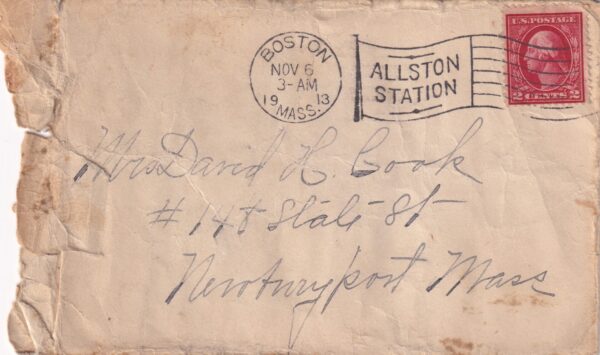 BOSTON
NOV 6
3-AM
1913
MASS.
ALLSTON
STATION
U.S. POSTAGE
2 CENTS 2
Mrs David H. Cook
# 148 State St
Newburyport Mass